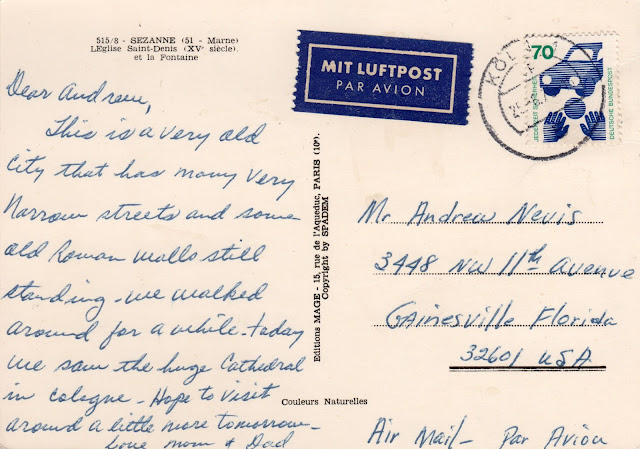 515/8 - SEZANNE (51 - Marne)
L'Eglise Saint-Denis (XVe siècle)
et la Fontaine
Dear Andrew,
This is a very old
city that has many very
narrow streets and some
old Roman walls still
standing - we walked
around for a while - today
we saw the huge Cathedral
in Cologne - Hope to visit
around a little more tomorrow -
Love Mom & Dad
Editions MAGE - 15, rue de l'Aqueduc, PARIS (10e).
Copyright by SPADEM
Couleurs Naturelles
MIT LUFTPOST
PAR AVION
KÖLN
70
JEDERZEIT SICHERHEIT
DEUTSCHE BUNDESPOST
Mr Andrew Nevis
3448 NW 11th Avenue
Gainesville Florida
32601 USA
Air Mail - Par Avion